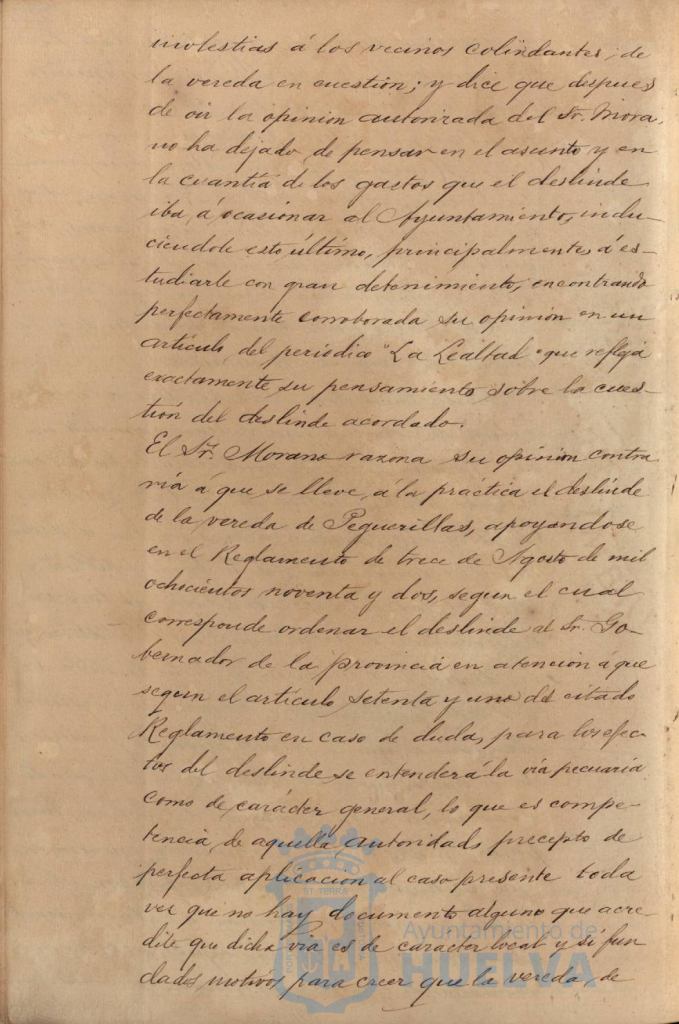 molestias á los vecinos colindantes, de
la vereda en cuestion; y dice que despues
de oir la opinion autorizada del Sr. Mora,
no ha dejado de pensar en el asunto y en
la cuantía de los gastos que el deslinde
iba á ocasionar al Ayuntamiento, indu-
ciendole esto último, principalmente, á es-
tudiarle con gran detenimiento, encontrando
perfectamente corroborada su opinion en un
artículo del periódico "La Lealtad" que refleja
exactamente su pensamiento sobre la cues-
tión del deslinde acordado.
El Sr. Morano razona su opinion contra
ria á que se lleve á la práctica el deslinde
de la vereda de Peguerillas, apoyandose
en el Reglamento de trece de Agosto de mil
ochocientos noventa y dos, segun el cual
corresponde ordenar el deslinde al Sr. Go-
bernador de la provincia en atencion á que
segun el artículo setenta y uno del citado
Reglamento en caso de duda, para los efec-
tos del deslinde se entenderá la via pecuaria
como de carácter general, lo que es compe-
tencia de aquella autoridad, precepto de
perfecta aplicacion al caso presente toda
vez que no hay documento alguno que acre-
dite que dicha via es de caracter local y si fun
dados motivos para creer que la vereda de
Ayuntamiento de
HUELVA